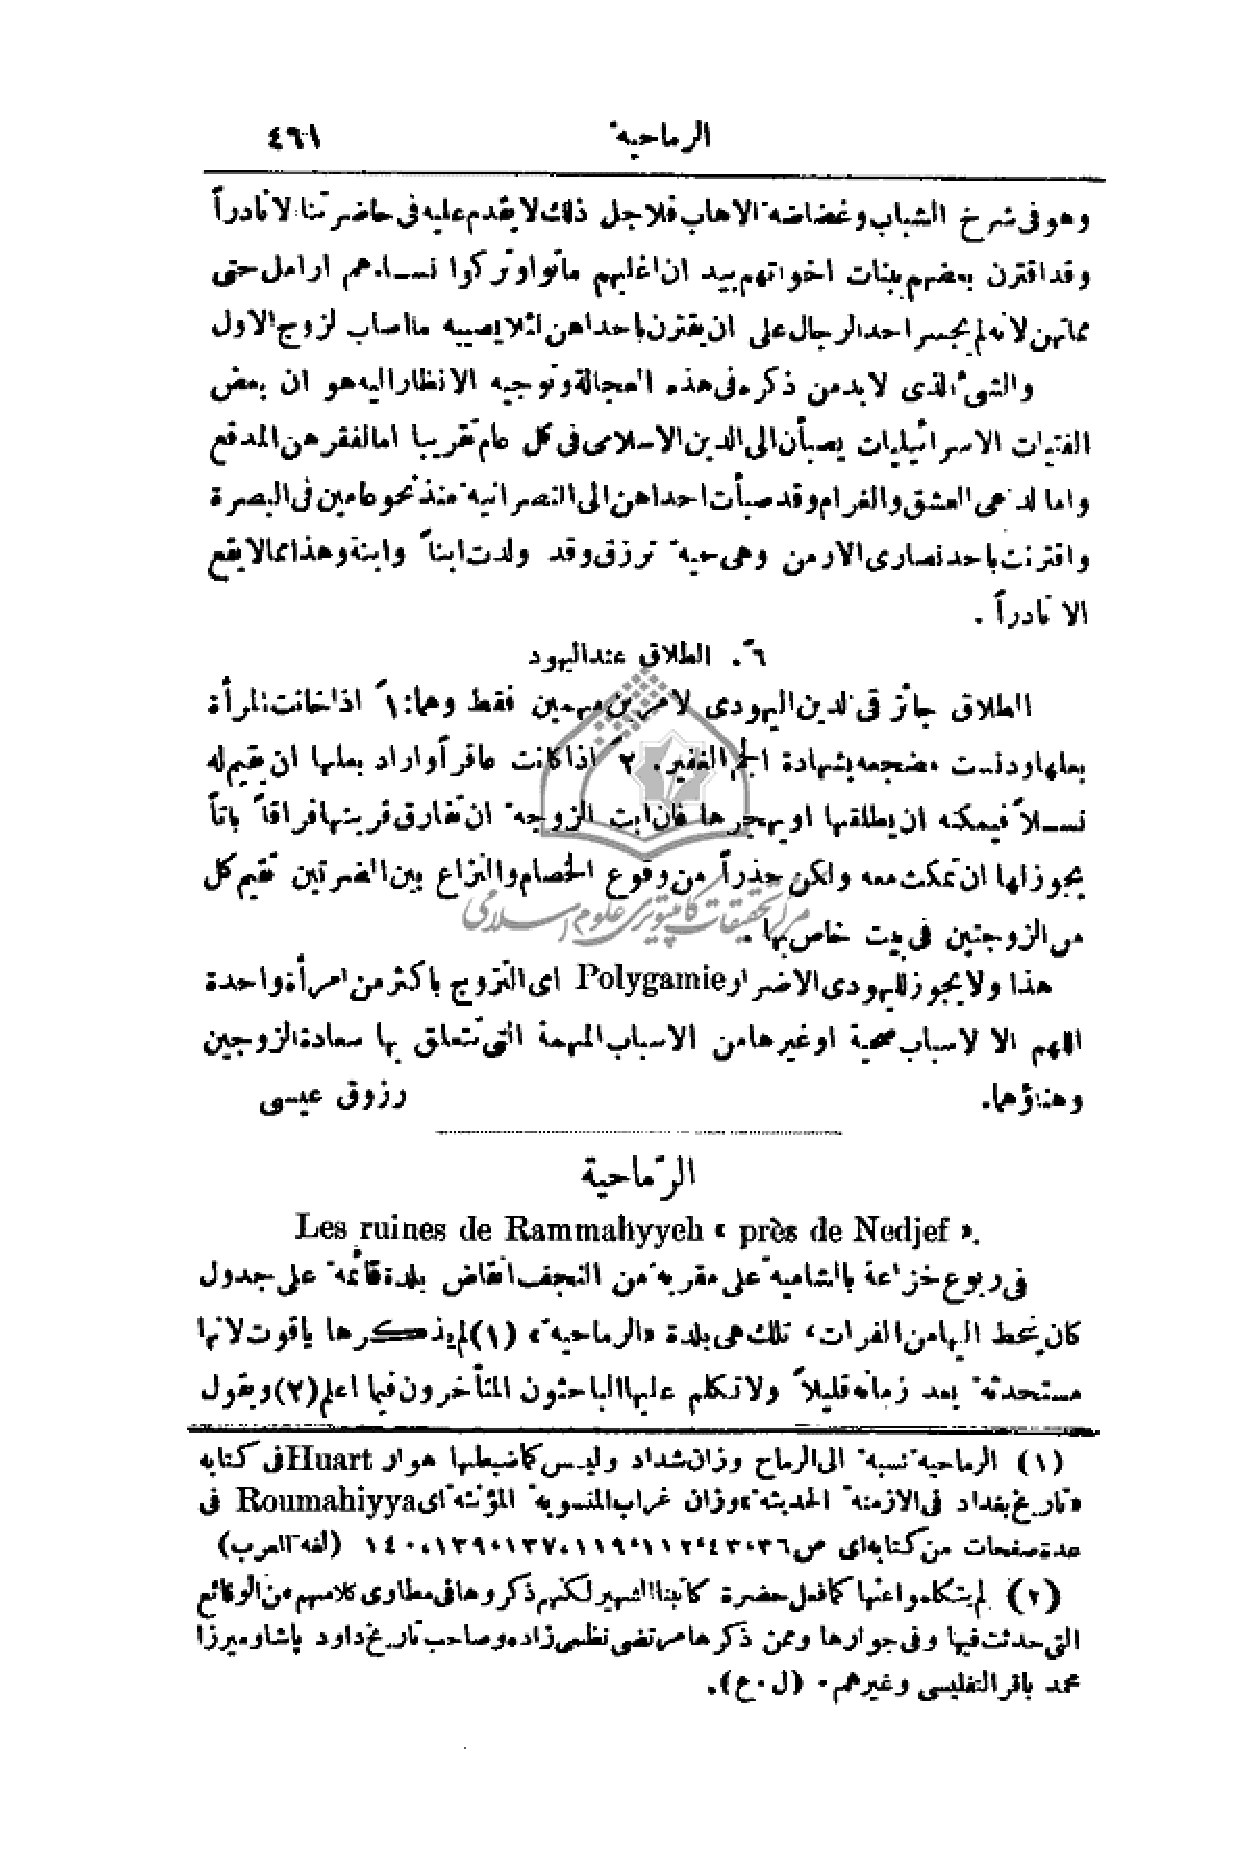 الرماحية ٤٦١
وهو فى شرخ الشباب وغضاضة الاهاب فلاجل ذلك لا يقدم عليه فى حاضرتنا لا نادراً
وقد اقترن بعضهم ببنات اخواتهم بيد ان اغلبهم ماتوا وتركوا نساءهم ارامل حتى
مماتهن لانه لم يجسر احد الرجال على ان يقترن باحداهن لئلا يصيبه ما اصاب لزوج الاول
والشىء الذى لا بد من ذكره فى هذه العجالة وتوجيه الانظار اليه هو ان بعض
الفتيات الاسرائيليات يصبأن الى الدين الاسلامى فى كل عام تقريبا اما لفقرهن المدقع
واما لدعى العشق والغرام وقد صبأت احداهن الى النصرانية منذ نحو عامين فى البصرة
واقترنت باحد نصارى الارمن وهى حية ترزق وقد ولدت ابناً وابنة وهذا مما لا يقع
الا نادراً .
٦ً. الطلاق عند اليهود
الطلاق جائز فى لدين اليهودى لامرين مهمين فقط وهما: ١ً اذا خانت المرأة
بعلها ودنست مضجعه بشهادة الجم الغفير. ٢ً اذا كانت عاقراً واراد بعلها ان يقيم له
نسلاً فيمكنه ان يطلقها او يهجرها فان ابت الزوجة ان تفارق قرينها فراقاً باتاً
يجوز لها ان تمكث معه ولكن حذراً من وقوع الخصام والنزاع بين الضرتين تقيم كل
من الزوجتين فى بيت خاص بها .
مركز تحقيقات كامپيوترى علوم اسلامى
هذا ولا يجوز لليهودى الاضرار Polygamie اى التزوج باكثر من امرأة واحدة
اللهم الا لاسباب صحية او غيرها من الاسباب المهمة التى تتعلق بها سعادة الزوجين
وهناؤهما. رزوق عيسى
الرّماحية
Les ruines de Rammahyyeh « près de Nedjef ».
فى ربوع خزاعة بالشامية على مقربة من النجف انقاض بلدة قائمة على جدول
كان ينحط اليها من الفرات، تلك هى بلدة «الرماحية» (١) لم يذكرها ياقوت لانها
مستحدثة بعد زمانه قليلاً ولا تكلم عليها الباحثون المتأخرون فيما اعلم (٢) ويقول
(١) الرماحية نسبة الى الرماح وزان شداد وليس كما ضبطها هوار Huart فى كتابه
«تاريخ بغداد فى الازمنة الحديثة» وزان غراب المنسوبة المؤنثة اى Roumahiyya فى
عدة صفحات من كتابه اى ص ٣٦، ٤٣، ١١٢، ١١٩، ١٣٧، ١٣٩، ١٤٠ (لغة العرب)
(٢) لم يتكلموا عنها كما فعل حضرة كاتبنا الشهير لكنهم ذكروها فى مطاوى كلامهم من الوقائع
التى حدثت فيها وفى جوارها وممن ذكرها مرتضى نظمى زاده وصاحب تاريخ داود باشا وميرزا
محمد باقر التفليسى وغيرهم. (ل.ع).